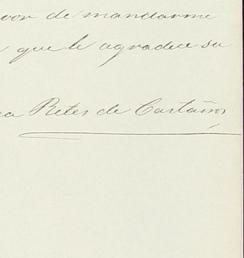 vor de mandarme
que le agradece su
Retes de Castaños